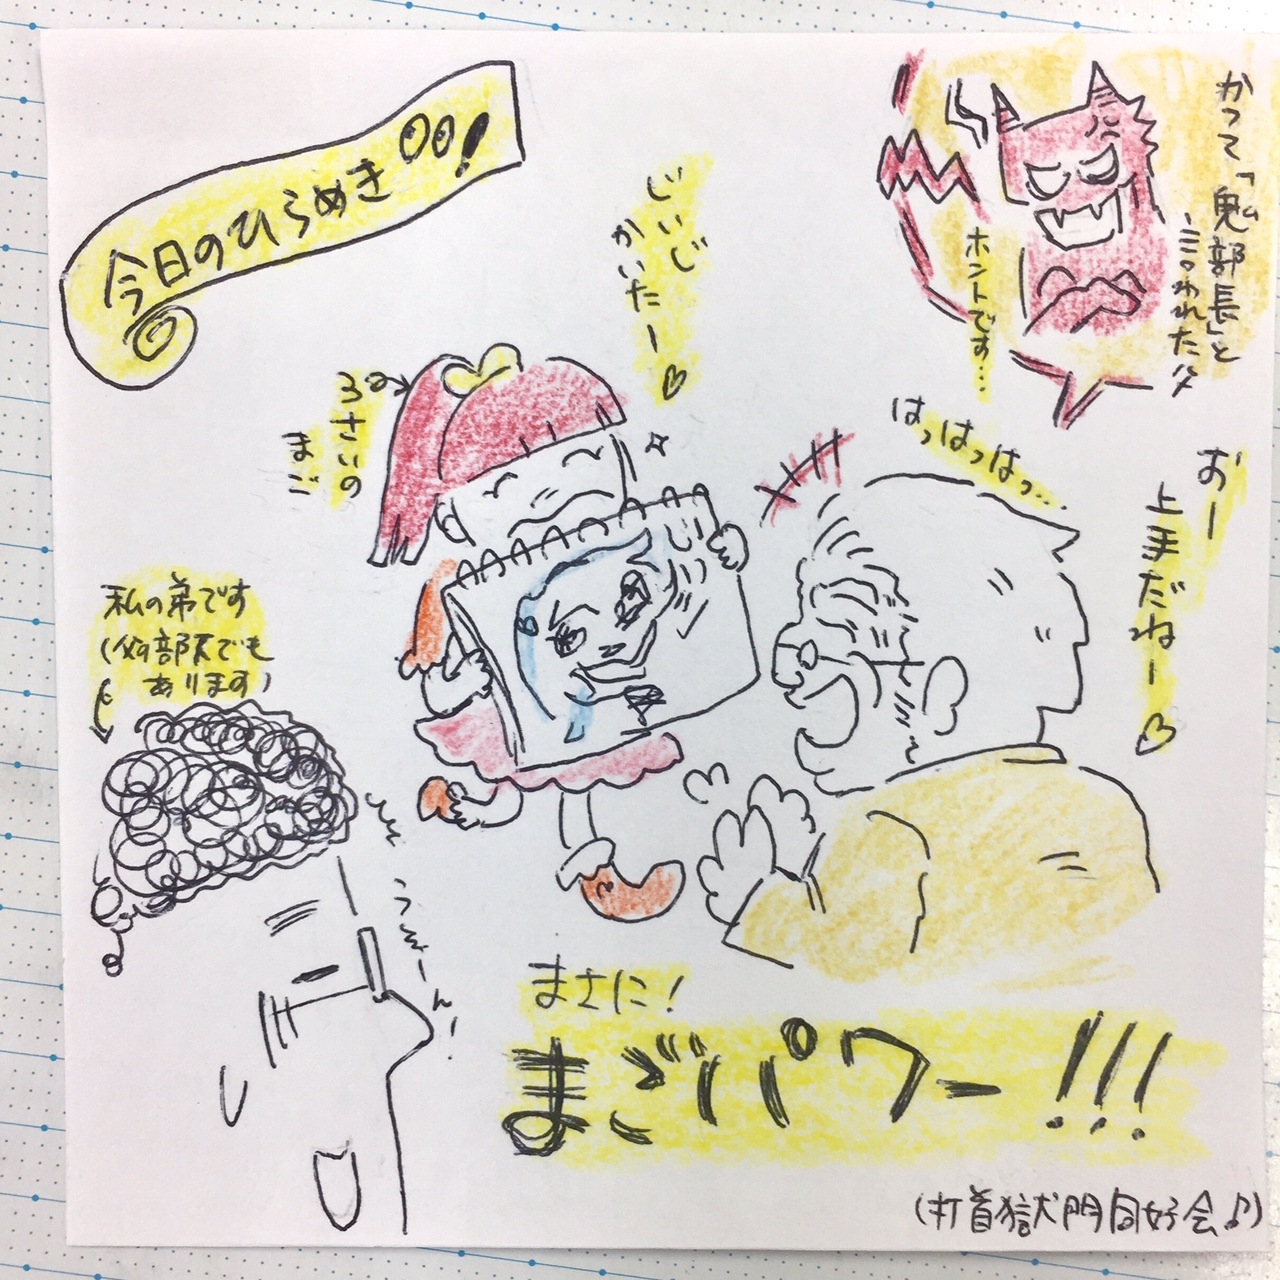 今日のひらめき!
かつて「鬼部長」と
言われた父
ホントです…
じいじ
かいたー♡
3さいの
まご
はっはっはっ…
おー
上まだねー♡
私の弟です
(父の部下でも
あります)
うーん!
まさに!
まごパワー!!!
(打首獄門同好会♪)